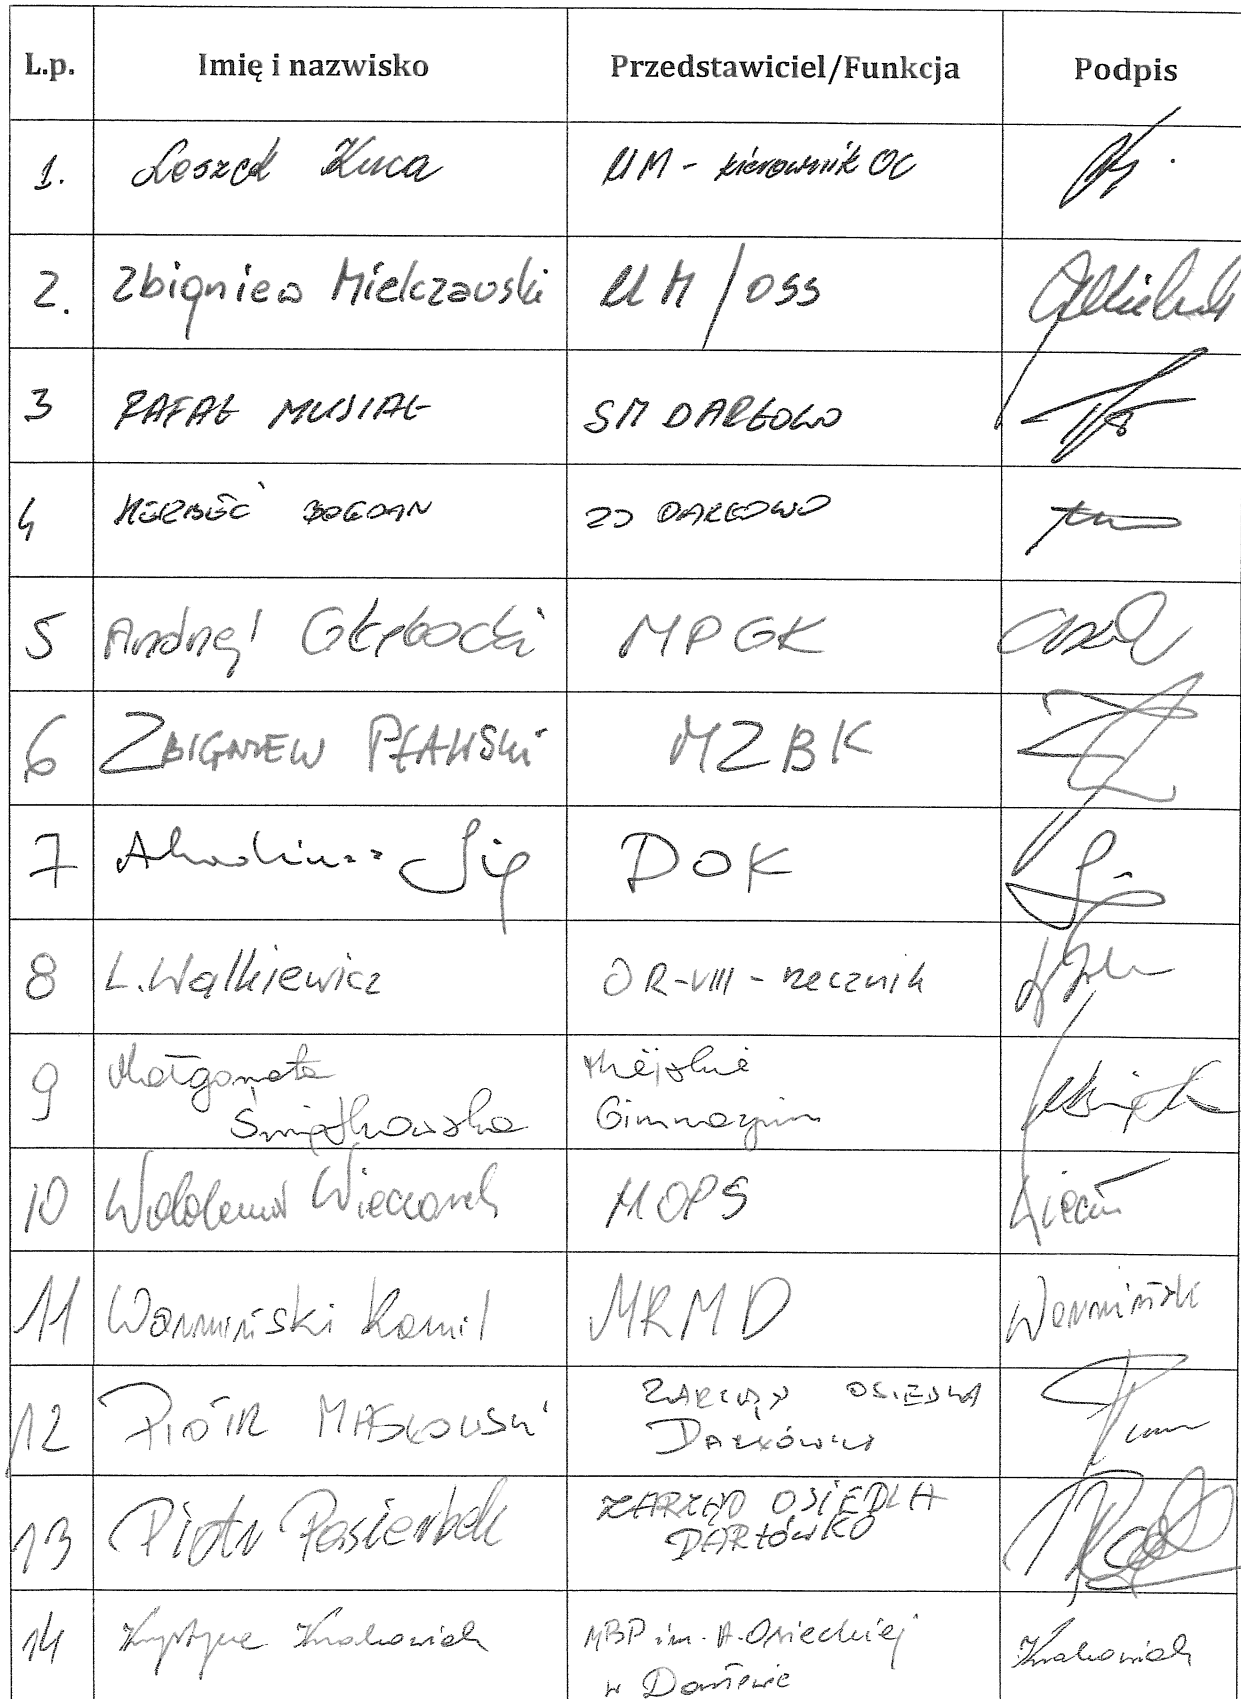 L.p. Imię i nazwisko Przedstawiciel/Funkcja Podpis
1. Leszek Kuca UM - kierownik OC
2. Zbigniew Mielczarski UM / OSS
3 RAFAŁ MUSIAŁ SM DARŁOWO
4 BOGDAN DARŁOWO
5 Andrzej Głębocki MPGK
6 ZBIGNIEW PŁAWSKI MZBK
7 Arkadiusz Sip DOK
8 L. Walkiewicz OR-VIII - rzecznik
9 Małgorzata Miejskie
Świątkowska Gimnazjum
10 Waldemar Wieczorek MOPS
11 Warmiński Kamil MRMD Warmiński
12 PIOTR MASŁOWSKI ZARZĄD OSIEDLA
DARŁÓWKO
13 Piotr Pasierbek ZARZĄD OSIEDLA
DARŁÓWKO
14 Krystyna Krakowiak MBP im. A. Osieckiej Krakowiak
w Darłowie